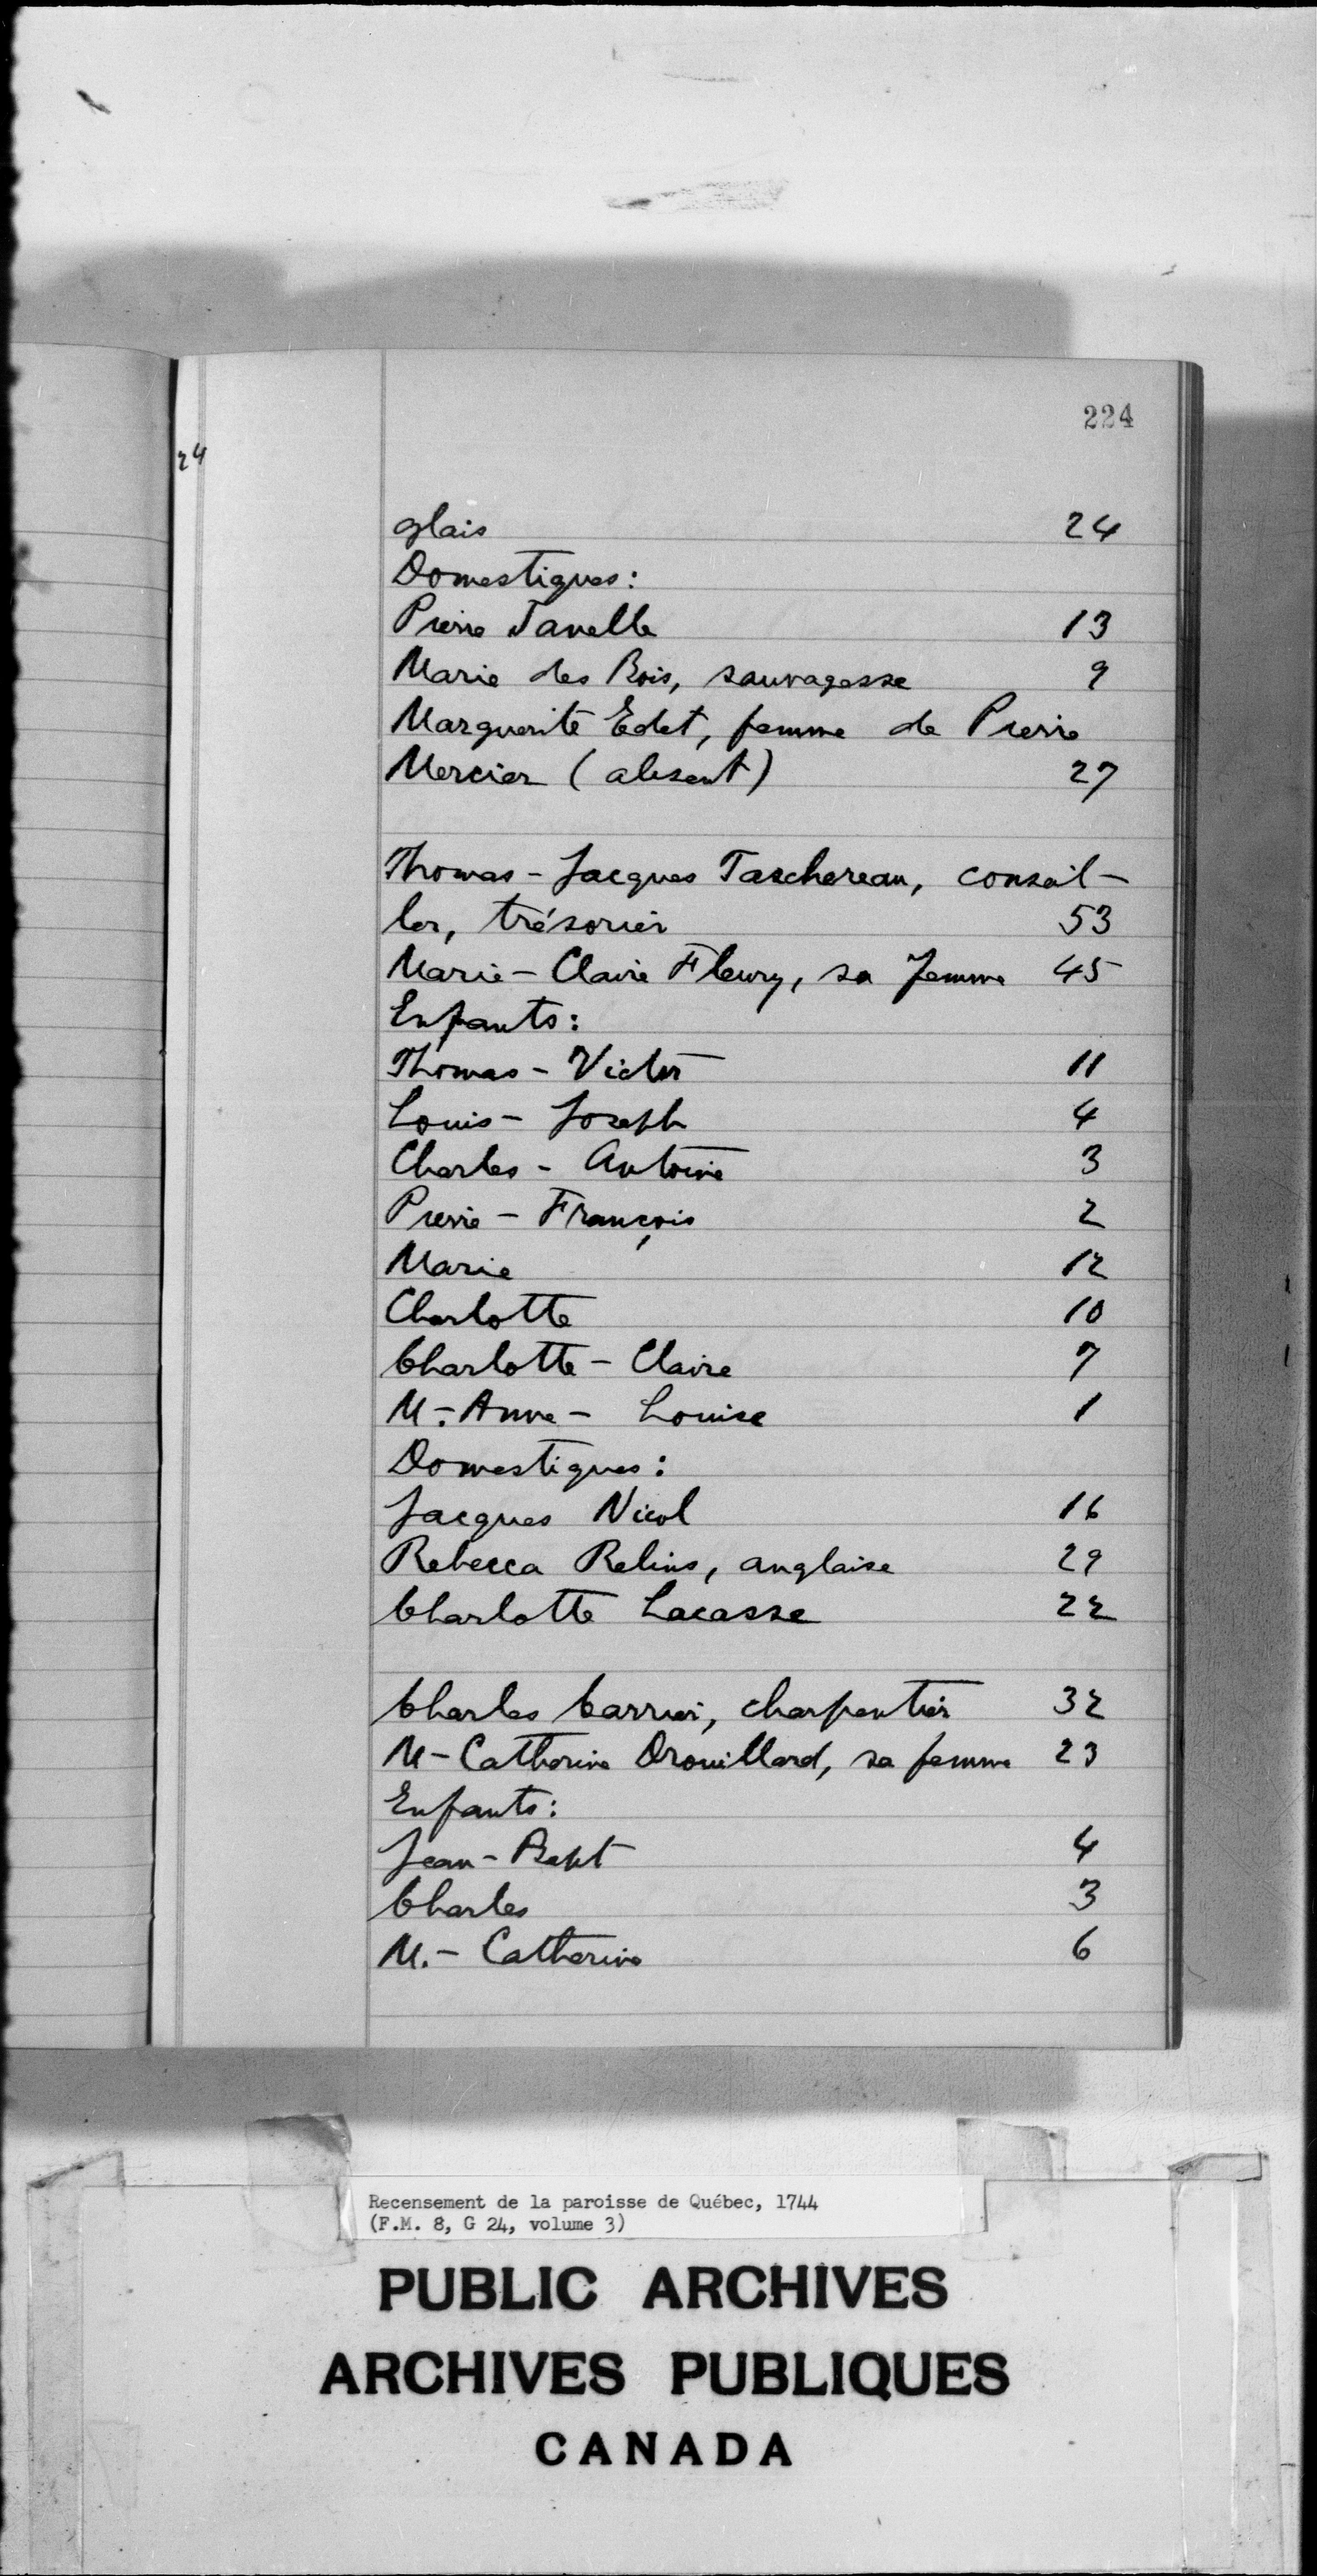 224
24
glais 24
Domestiques:
Pierre Tavelle 13
Marie des Bois, sauvagesse 9
Marguerite Edet, femme de Pierre
Mercier (absent) 27
Thomas-Jacques Taschereau, conseil-
ler, trésorier 53
Marie-Claire Fleury, sa femme 45
Enfants:
Thomas-Victor 11
Louis-Joseph 4
Charles-Antoine 3
Pierre-François 2
Marie 12
Charlotte 10
Charlotte-Claire 7
M.-Anne-Louise 1
Domestiques:
Jacques Nicol 16
Rebecca Relins, anglaise 29
Charlotte Lacasse 22
Charles Carrier, charpentier 32
M-Catherine Drouillard, sa femme 23
Enfants:
Jean-Bapt 4
Charles 3
M.-Catherine 6
Recensement de la paroisse de Québec, 1744
(F.M. 8, G 24, volume 3)
PUBLIC ARCHIVES
ARCHIVES PUBLIQUES
CANADA